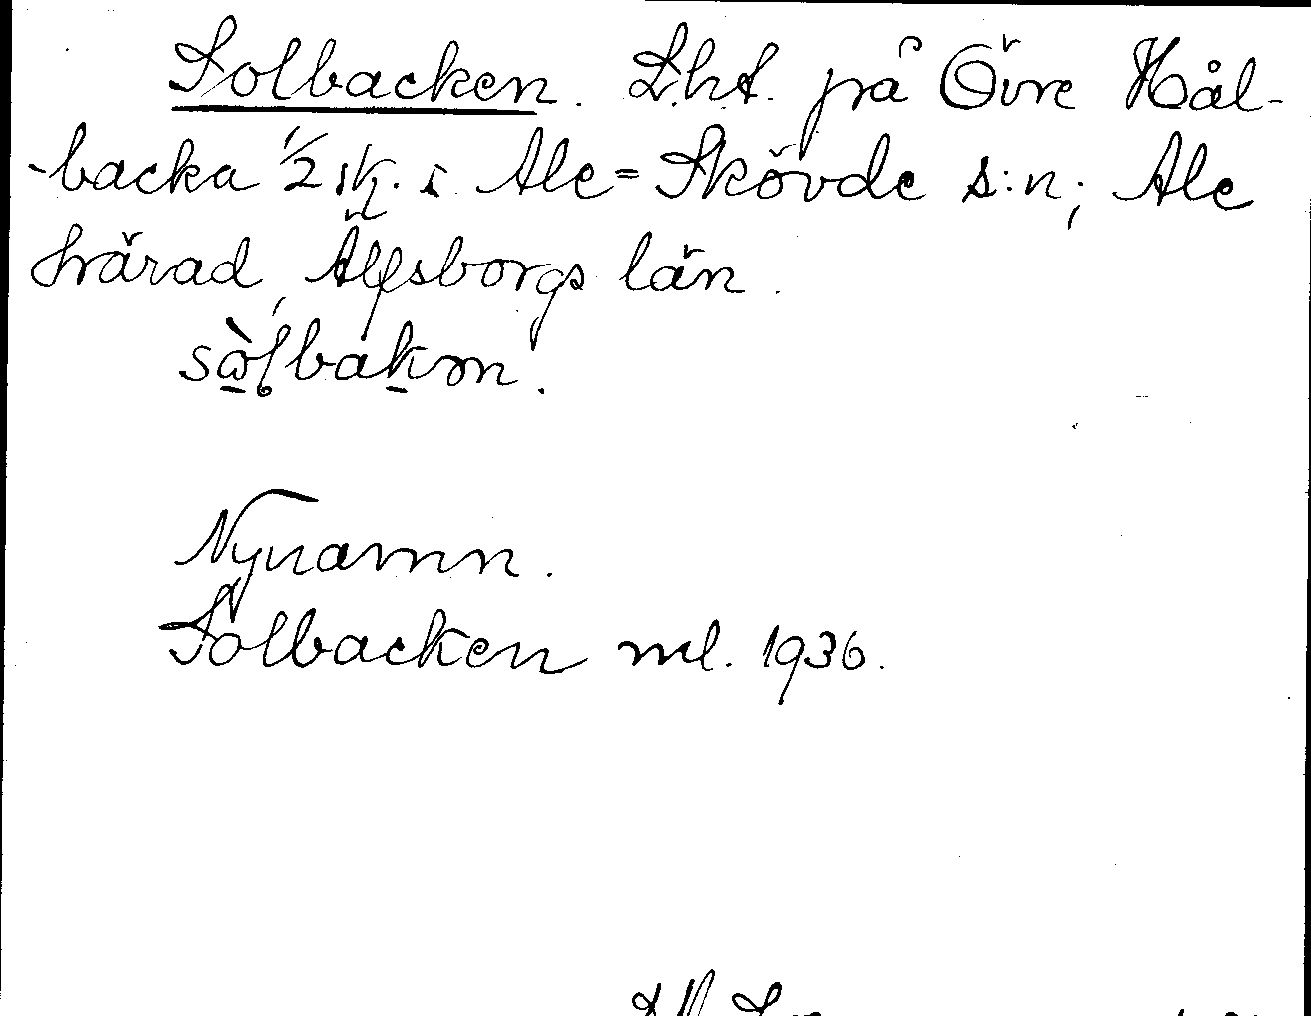 Solbacken. Lht. på Övre Hål-
-backa 1/2 sk. i Ale=Skövde s:n; Ale
härad, Älfsborgs län.
Nynamn.
Solbacken ml. 1936.